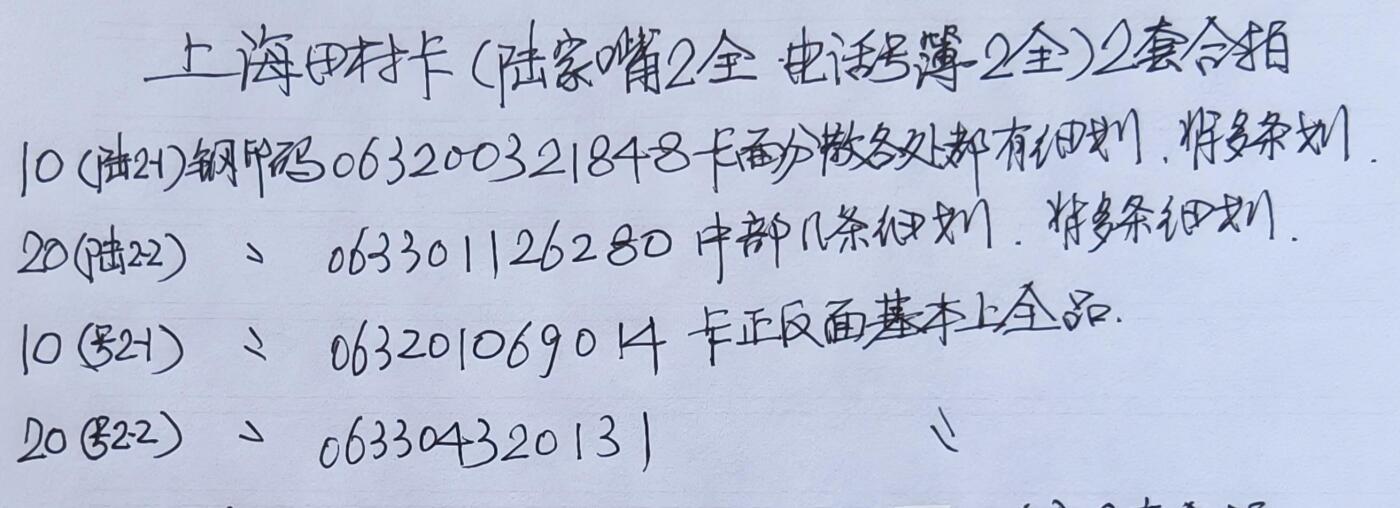 上海田村卡(陆家嘴2全 电话号簿2全)2套合拍
10(陆2-1)钢印码063200321848卡面分散各处都有细划.背多条划.
20(陆2-2) 〃 063301126280中部几条细划.背多条细划.
10(号2-1) 〃 063201069014卡正反面基本上全品.
20(号2-2) 〃 063304320131 〃